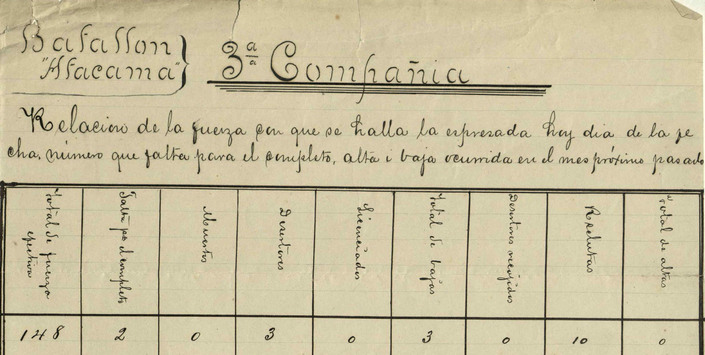 Batallon
"Atacama"
3ª Compañia
Relacion de la fuerza con que se halla la espresada hoy dia de la fe
cha, número que falta para el completo, alta i baja ocurrida en el mes próximo pasado
Total de fuerza efectiva
Falta pa el completo
Muertos
Desertores
Licenciados
Total de bajas
Desertores recojidos
Reclutas
Total de altas
148 2 0 3 0 3 0 10 0